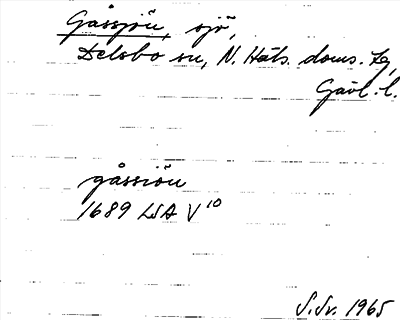 Gåssjön, sjö,
Delsbo sn, N. Häls. doms. tg,
Gävl. l.
gåssiön
1689 LSA V 10
S.Sv. 1965